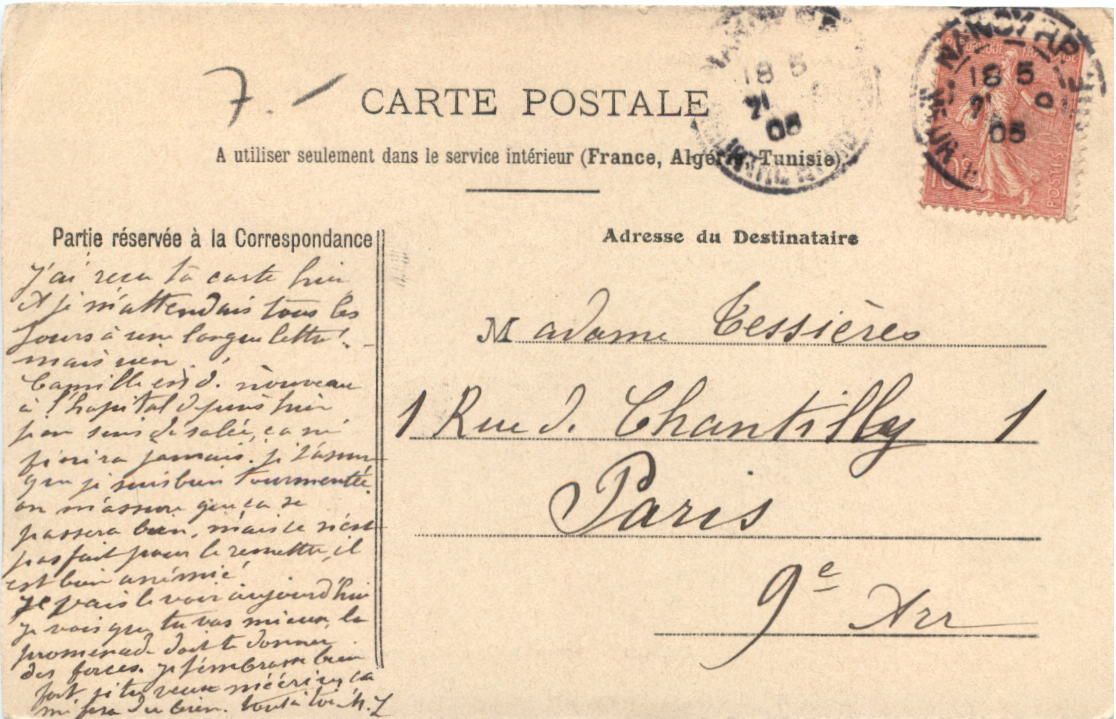 7. -
CARTE POSTALE
A utiliser seulement dans le service intérieur (France, Algérie, Tunisie)
NANCY
18 5
21
05
NANCY
18 5
21
05
10c
POSTES
Partie réservée à la Correspondance
Adresse du Destinataire
j'ai reçu ta carte hier
et je m'attendais tous les
jours à une longue lettre
mais rien.
Camille est d. nouveau
à l'hopital depuis hier
j'en suis désolée, ça ne
finira jamais. je t'assure
que je suis bien tourmentée
on m'assure que ça se
passera bien, mais ce n'est
pas fait pour le remettre, il
est bien anémié.
je vais le voir aujourd'hui
je vois que tu vas mieux, la
promenade doit te donner
des forces. je t'embrasse bien
fort si tu veux m'écrire, ça
me fera du bien. tout à toi M. L
Madame Tessières
1 Rue d. Chantilly 1
Paris
9e Arr